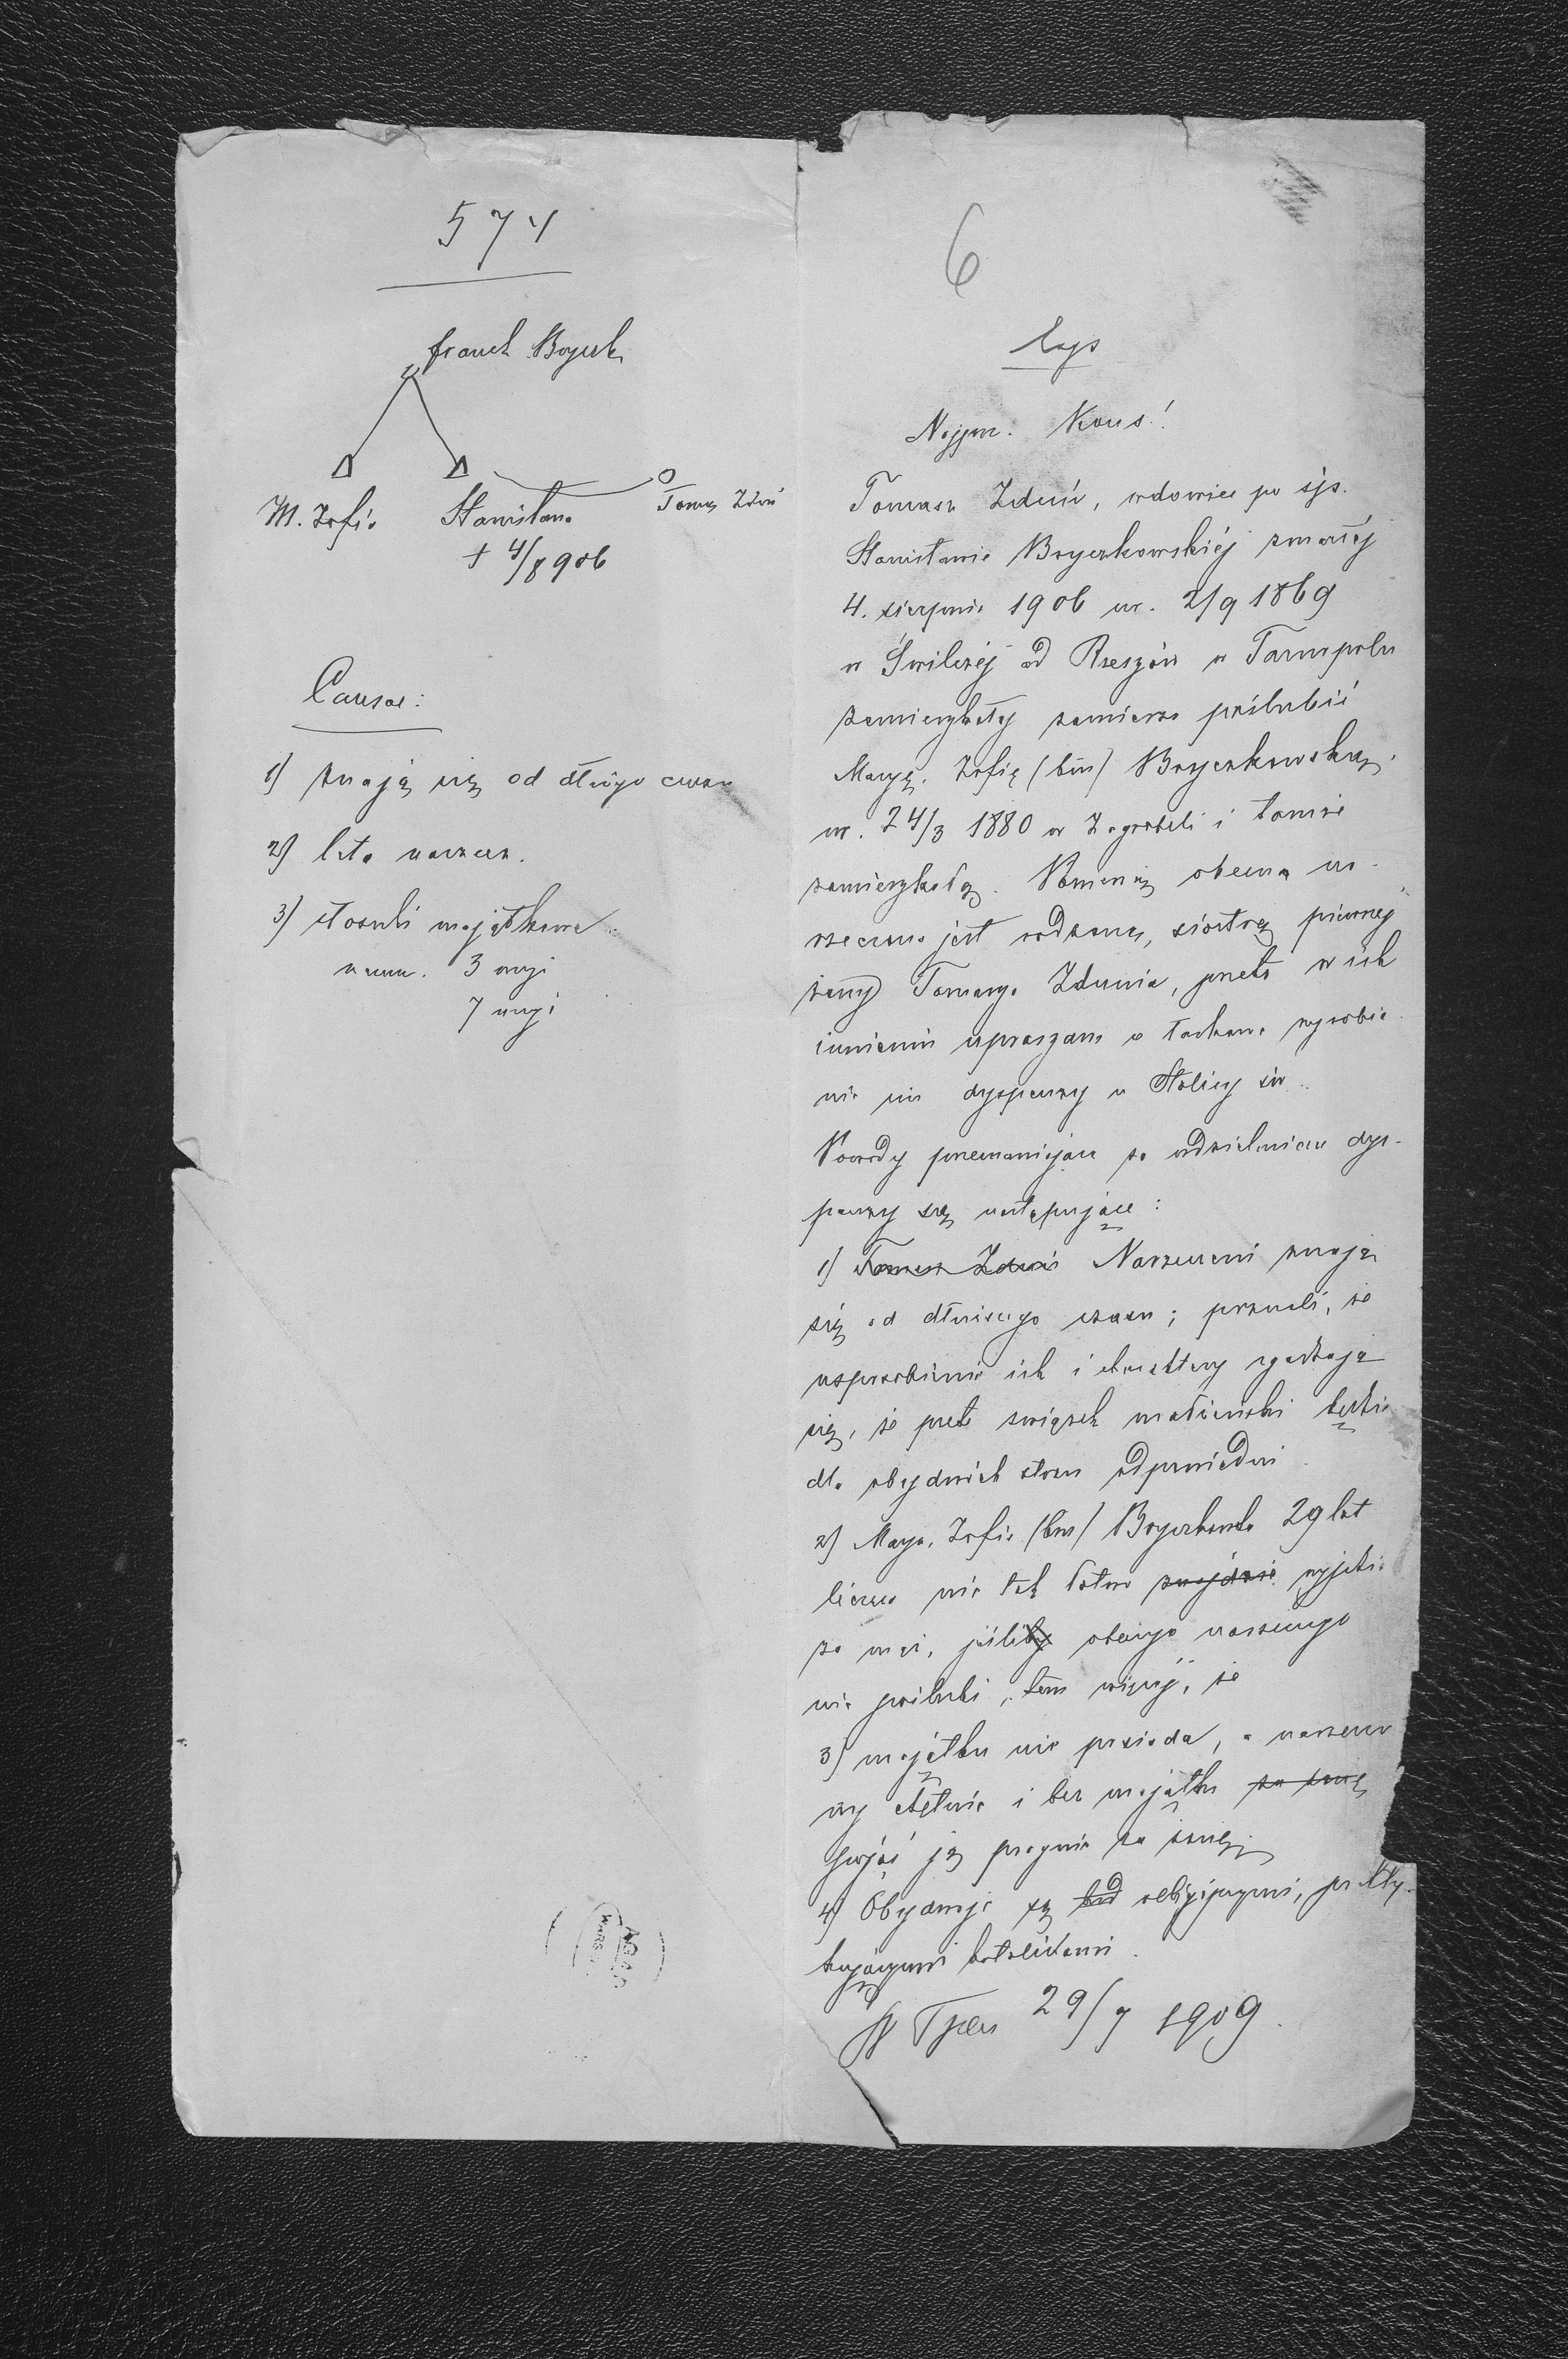 574
franek Boyczk.
M. Zofia Stanisława Tomasz Zduń
+ 4/8 906
Causae:
1) znają się od długo czasu
2) lata narzecz.
3) stosunki majątkowe
narzecz. 3 morgi
7 morgi
6
Najprz. Kons!
Tomasz Zduń, wdowiec po śp.
Stanisławie Boyczkowskiéj zmarłéj
4. sierpnia 1906 ur. 2/9 1869
w Świlczéj ad Rzeszów w Tarnopolu
zamieszkały zamierza poślubić
Maryę Zofię (bin) Boyczkowską,
ur. 24/3 1880 w Zagrobeli i tamże
zamieszkałą. Ponieważ obecna na-
rzeczona jest rodzoną siostrą pierwszej
żony Tomasza Zdunia, przeto w ich
imieniu upraszam o łaskawe wyrobie-
nie im dyspenzy u Stolicy św.
Powody przemawiające za udzieleniem dys-
penzy są następujące:
1) Tomasz Zduń Narzeczeni znają
się od dłuższego czasu; poznali, że
usposobienie ich i charaktery zgadzają
się, że przeto związek małżeński będzie
dla obydwich stron odpowiedni.
2) Marya Zofia (bin) Boyczkowska 29 lat
licząca nie tak łatwo znajdzie wyjdzie
za mąż, jeśliby obecnego narzeczonego
nie poślubi, tem więcéj, że
3) majątku nie posiada, a narzeczo-
ny chętnie i bez majątku za żonę
pojąć ją pragnie za żonę
4) Obydwoje są bad religijnymi, prakty-
kującymi katolikami.
Tpol 29/7 1909.
AGAD